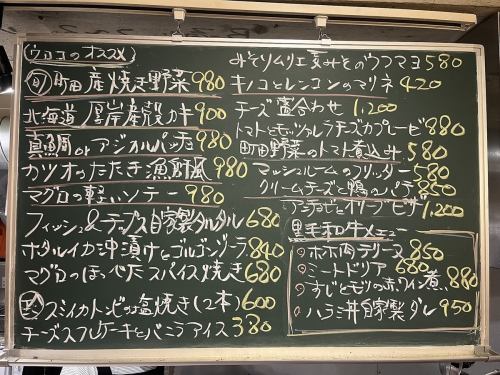 (ウロコのオススメ)
旬 町田産焼き野菜 980
北海道 厚岸産殻カキ 900
真鯛 or アジ カルパッチョ 980
カツオのたたき 漁師風 980
マグロの軽いソテー 980
フィッシュ&チップス自家製タルタル 680
ホタルイカ沖漬けとゴルゴンゾーラ 840
マグロのほっぺた スパイス焼き 680
スミイカトンビの塩焼き(2本) 600
チーズスフレケーキとバニラアイス 380
みそソムリエ 夏みそのウフマヨ 580
キノコとレンコンのマリネ 420
チーズ盛合わせ 1,200
トマトとモッツァレラチーズカプレーゼ 880
町田野菜のトマト煮込み 580
マッシュルームのフリッター 580
クリームチーズと鴨のパテ 850
アンチョビとオリーブピザ 1,200
黒毛和牛メニュー
ホホ肉テリーヌ 850
ミートドリア 680
すじとモツの赤ワイン煮 880
ハラミ丼自家製ダレ 950